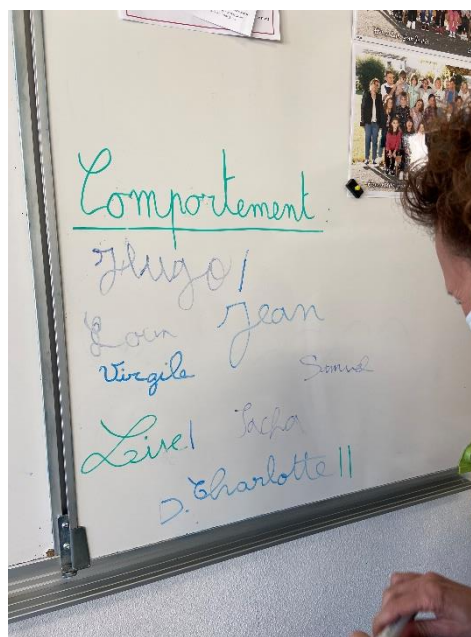 Comportement
Hugo |
Jean
Virgile
Samuel
Lise | Sacha
D. Charlotte ||